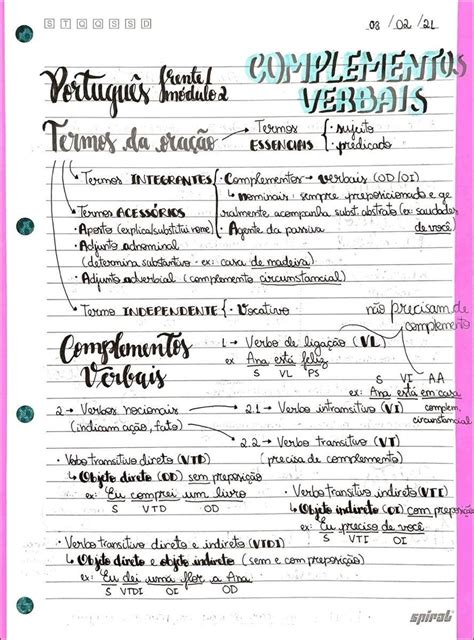 S T Q Q S S D
03 / 02 / 21
Português frente 1 módulo 2
COMPLEMENTOS VERBAIS
Termos da oração → Termos ESSENCIAIS { · sujeito
· predicado
Termos INTEGRANTES { · Complementos → verbais (OD/OI)
↳ nominais: sempre preposicionado e ge
ralmente acompanha subst. abstrato (ex: saudades
de você)
· Agente da passiva
Termos ACESSÓRIOS
· Aposto (explica/substitui nome)
· Adjunto adnominal
(determina substantivo - ex: casa de madeira)
· Adjunto adverbial (complemento circunstancial)
Termo INDEPENDENTE { · Vocativo
não precisam de
complemento
Complementos
Verbais
1 → Verbo de ligação (VL)
ex: Ana está feliz
S VL PS
S VI A.A
ex: Ana está em casa
complem.
circunstancial
2 → Verbos nocionais
(indicam ação, fato)
2.1 → Verbo intransitivo (VI)
2.2 → Verbo transitivo (VT)
(precisa de complemento)
· Vebo transitivo direto (VTD)
↳ Objeto direto (OD) sem preposição
ex: Eu comprei um livro
S VTD OD
· Verbo transitivo indireto (VTI)
↳ Objeto indireto (OI) com preposição
ex: Eu preciso de você
S VTI OI
· Verbo transitivo direto e indireto (VTDI)
↳ Objeto direto e objeto indireto (sem e com preposição)
ex: Eu dei uma flor a Ana
S VTDI OD OI
spiral